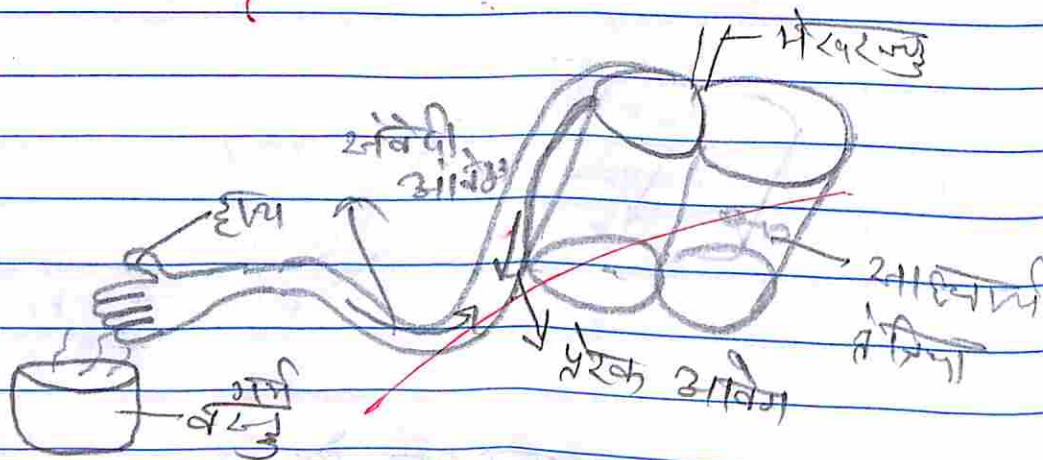 मेरुरज्जु
संवेदी
आवेग
हाथ
साहचर्य
तंत्रिका
प्रेरक आवेग
गर्म
वस्तु